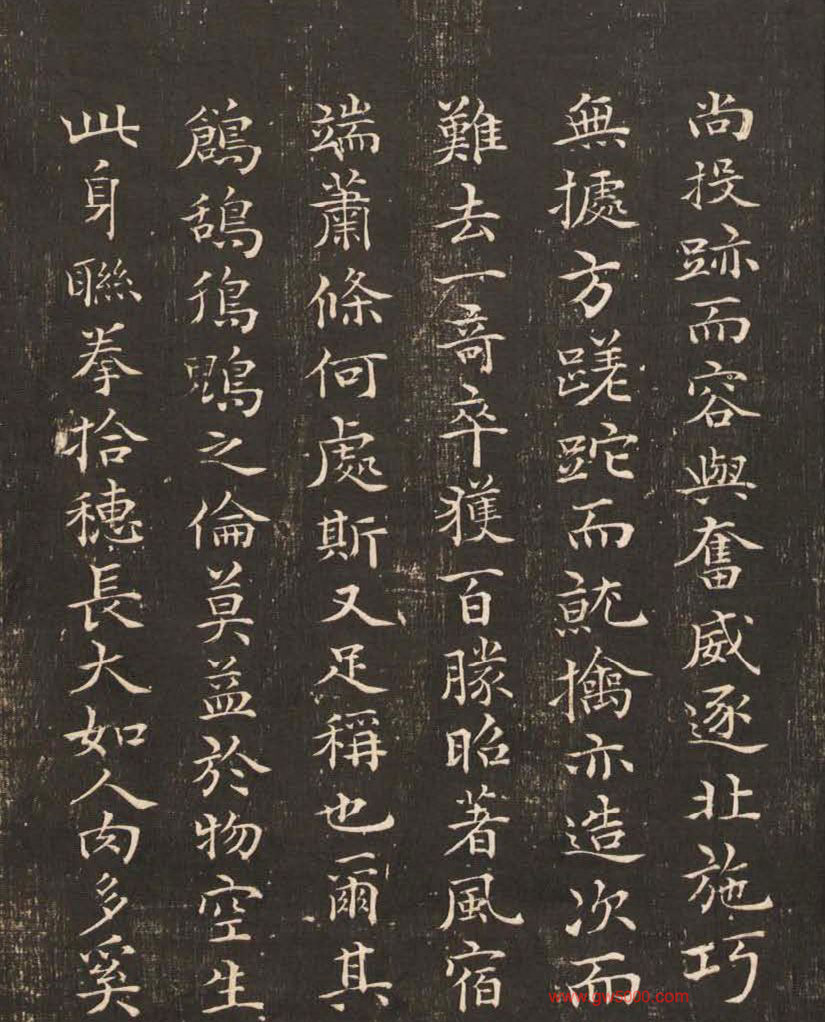 尚投跡而容與奮威逐北施巧
無據方蹉跎而就擒亦造次而
難去一奇卒獲百勝昭著風宿
端蕭條何處斯又足稱也爾其
鶬鴰鵂鶹之倫莫益於物空生
此身聯拳拾穗長大如人肉多奚
www.gwsd00.com